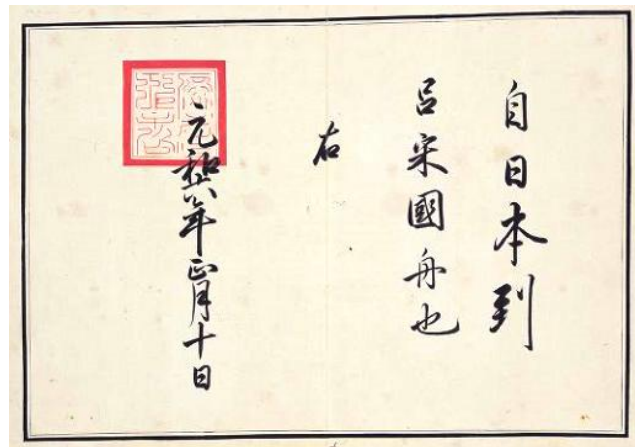 自日本到
呂宋國舟也
右
元和六年正月十日